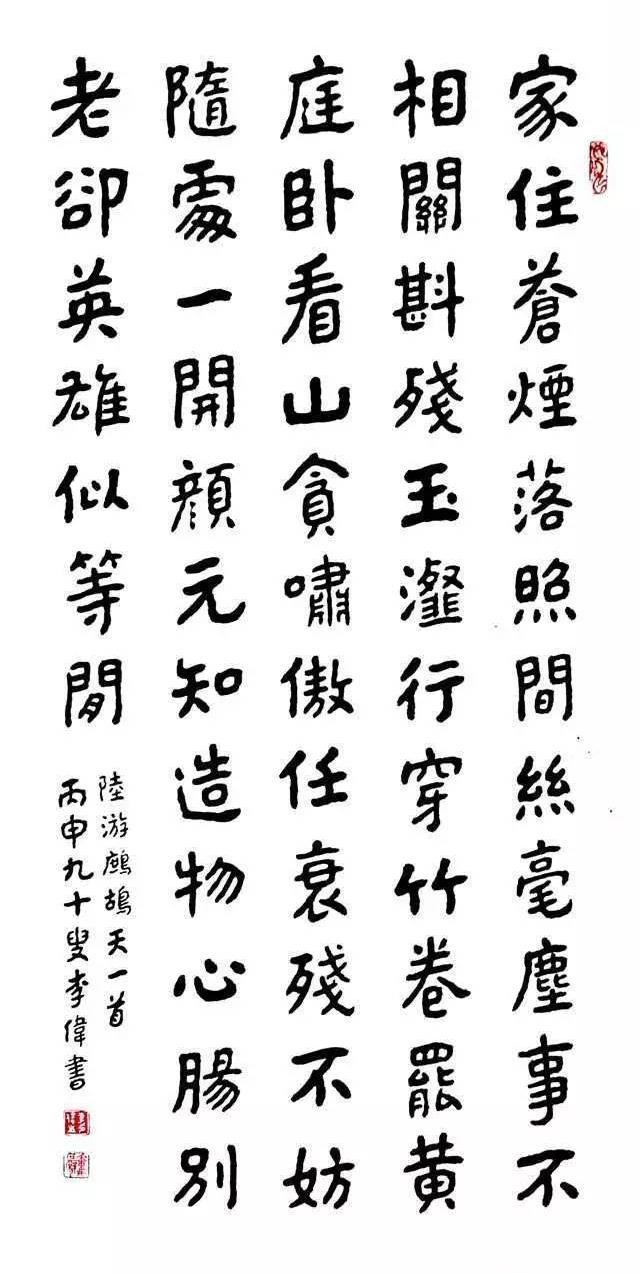 家住蒼煙落照間絲毫塵事不
相關斟殘玉瀣行穿竹卷罷黄
庭卧看山貪嘯傲任衰殘不妨
隨處一開顔元知造物心腸別
老卻英雄似等閒
陸游鷓鴣天一首
丙申九十叟李偉書